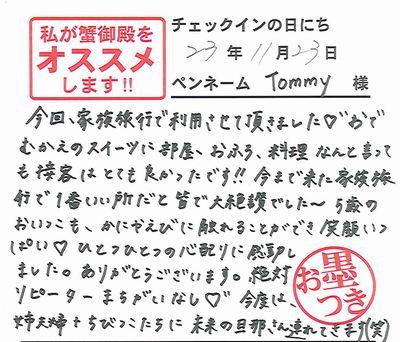 私が蟹御殿を
オススメ
します!!
チェックインの日にち
23年11月23日
ペンネーム Tommy 様
今回、家族旅行で利用させて頂きました♡おで
むかえのスイーツに部屋、おふろ、料理 なんと言って
も接客はとても良かったです!! 今まで来た家族旅
行で1番いい所だと皆で大絶讃でした〜 5歳の
おいっこも、かにやえびに触れることができ 笑顔いっ
ぱい♡ ひとつひとつの心配りに感動し
ました。ありがとうございます。絶対
リピーターまちがいなし♡ 今度は、
姉夫婦+ちびっこたちに 未来の旦那さん連れてきます(笑)
お墨つき